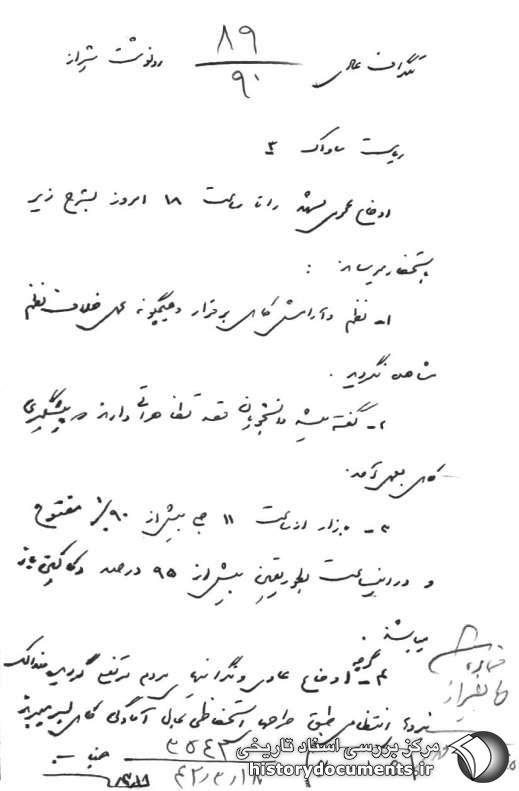 تلگراف عالی ۸۹ رونوشت شیراز
۹۰
ریاست ساواک ۳
اوضاع عمومی مشهد را تا ساعت ۱۸ امروز بشرح زیر
باستحضار میرساند :
۱- نظم و آرامش کامل برقرار و هیچگونه عمل خلاف نظم
مشاهده نگردید .
۲- گفته میشد دانشجویان قصد تظاهراتی دارند پیشگیری
کامل بعمل آمد.
۳- بازار از ساعت ۱۱ صبح بیش از ۹۰٪ مفتوح
و در اینساعت بطور یقین بیش از ۹۵ درصد دکاکین باز
میباشد .
۴- گرچه اوضاع عادی و نگرانیهای مردم مرتفع گردیده معذالک
نیروهای انتظامی طبق طرحهای استحفاظی بحال آمادگی کامل بسر میبرند
۳۵۴۳
۴۲/۳/۱۸
مرکز بررسی اسناد تاریخی
historydocuments.ir